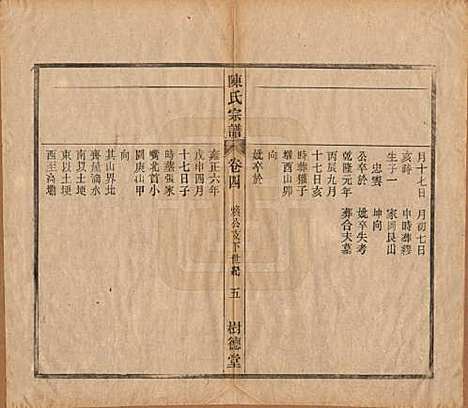 月十七日 月初七日
亥時 申時葬繆
生子一 家岡艮山
忠雲 坤向
公卒於 妣卒失考
乾隆元年 葬合夫墓
丙辰九月
十七日亥
時葬獾子
壋酉山卯
向
妣卒於
陳氏宗譜 卷四 公支下世紀 五 樹德堂
雍正六年
戊申四月
十七日子
時葬張家
嘴北首小
圍庚山甲
向
其山界北
齊屋滴水
南以土埂
東以土埂
西至高壩